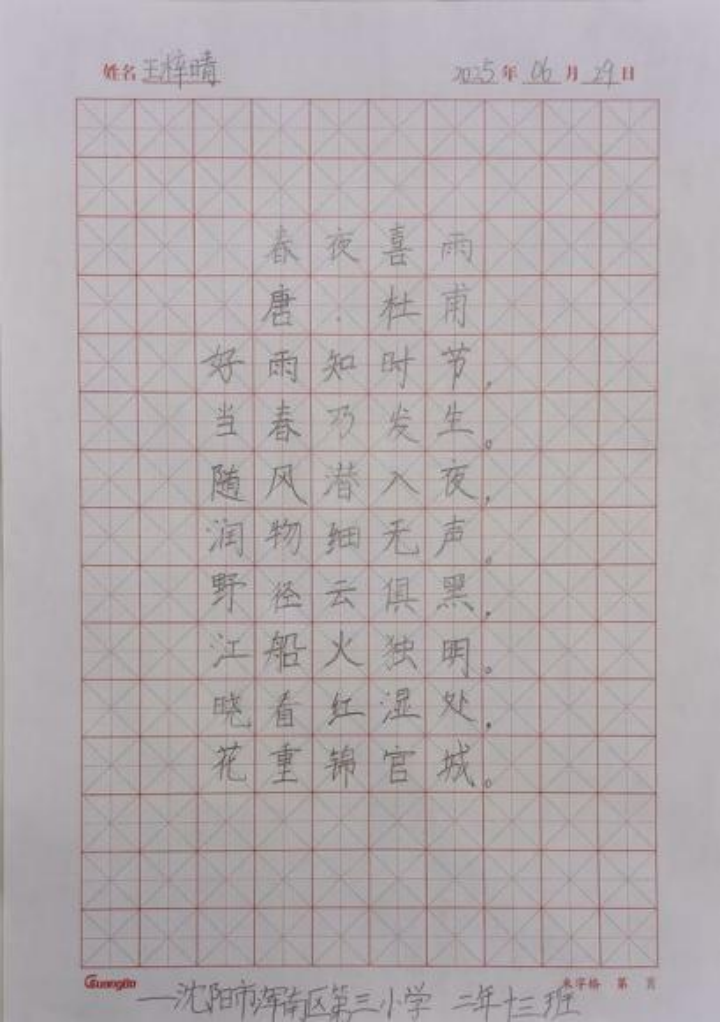 姓名 王梓晴 2025 年 06 月 29 日
春夜喜雨
唐·杜甫
好雨知时节，
当春乃发生。
随风潜入夜，
润物细无声。
野径云俱黑，
江船火独明。
晓看红湿处，
花重锦官城。
Guangbo 米字格 第 页
一沈阳市浑南区第三小学 二年十三班